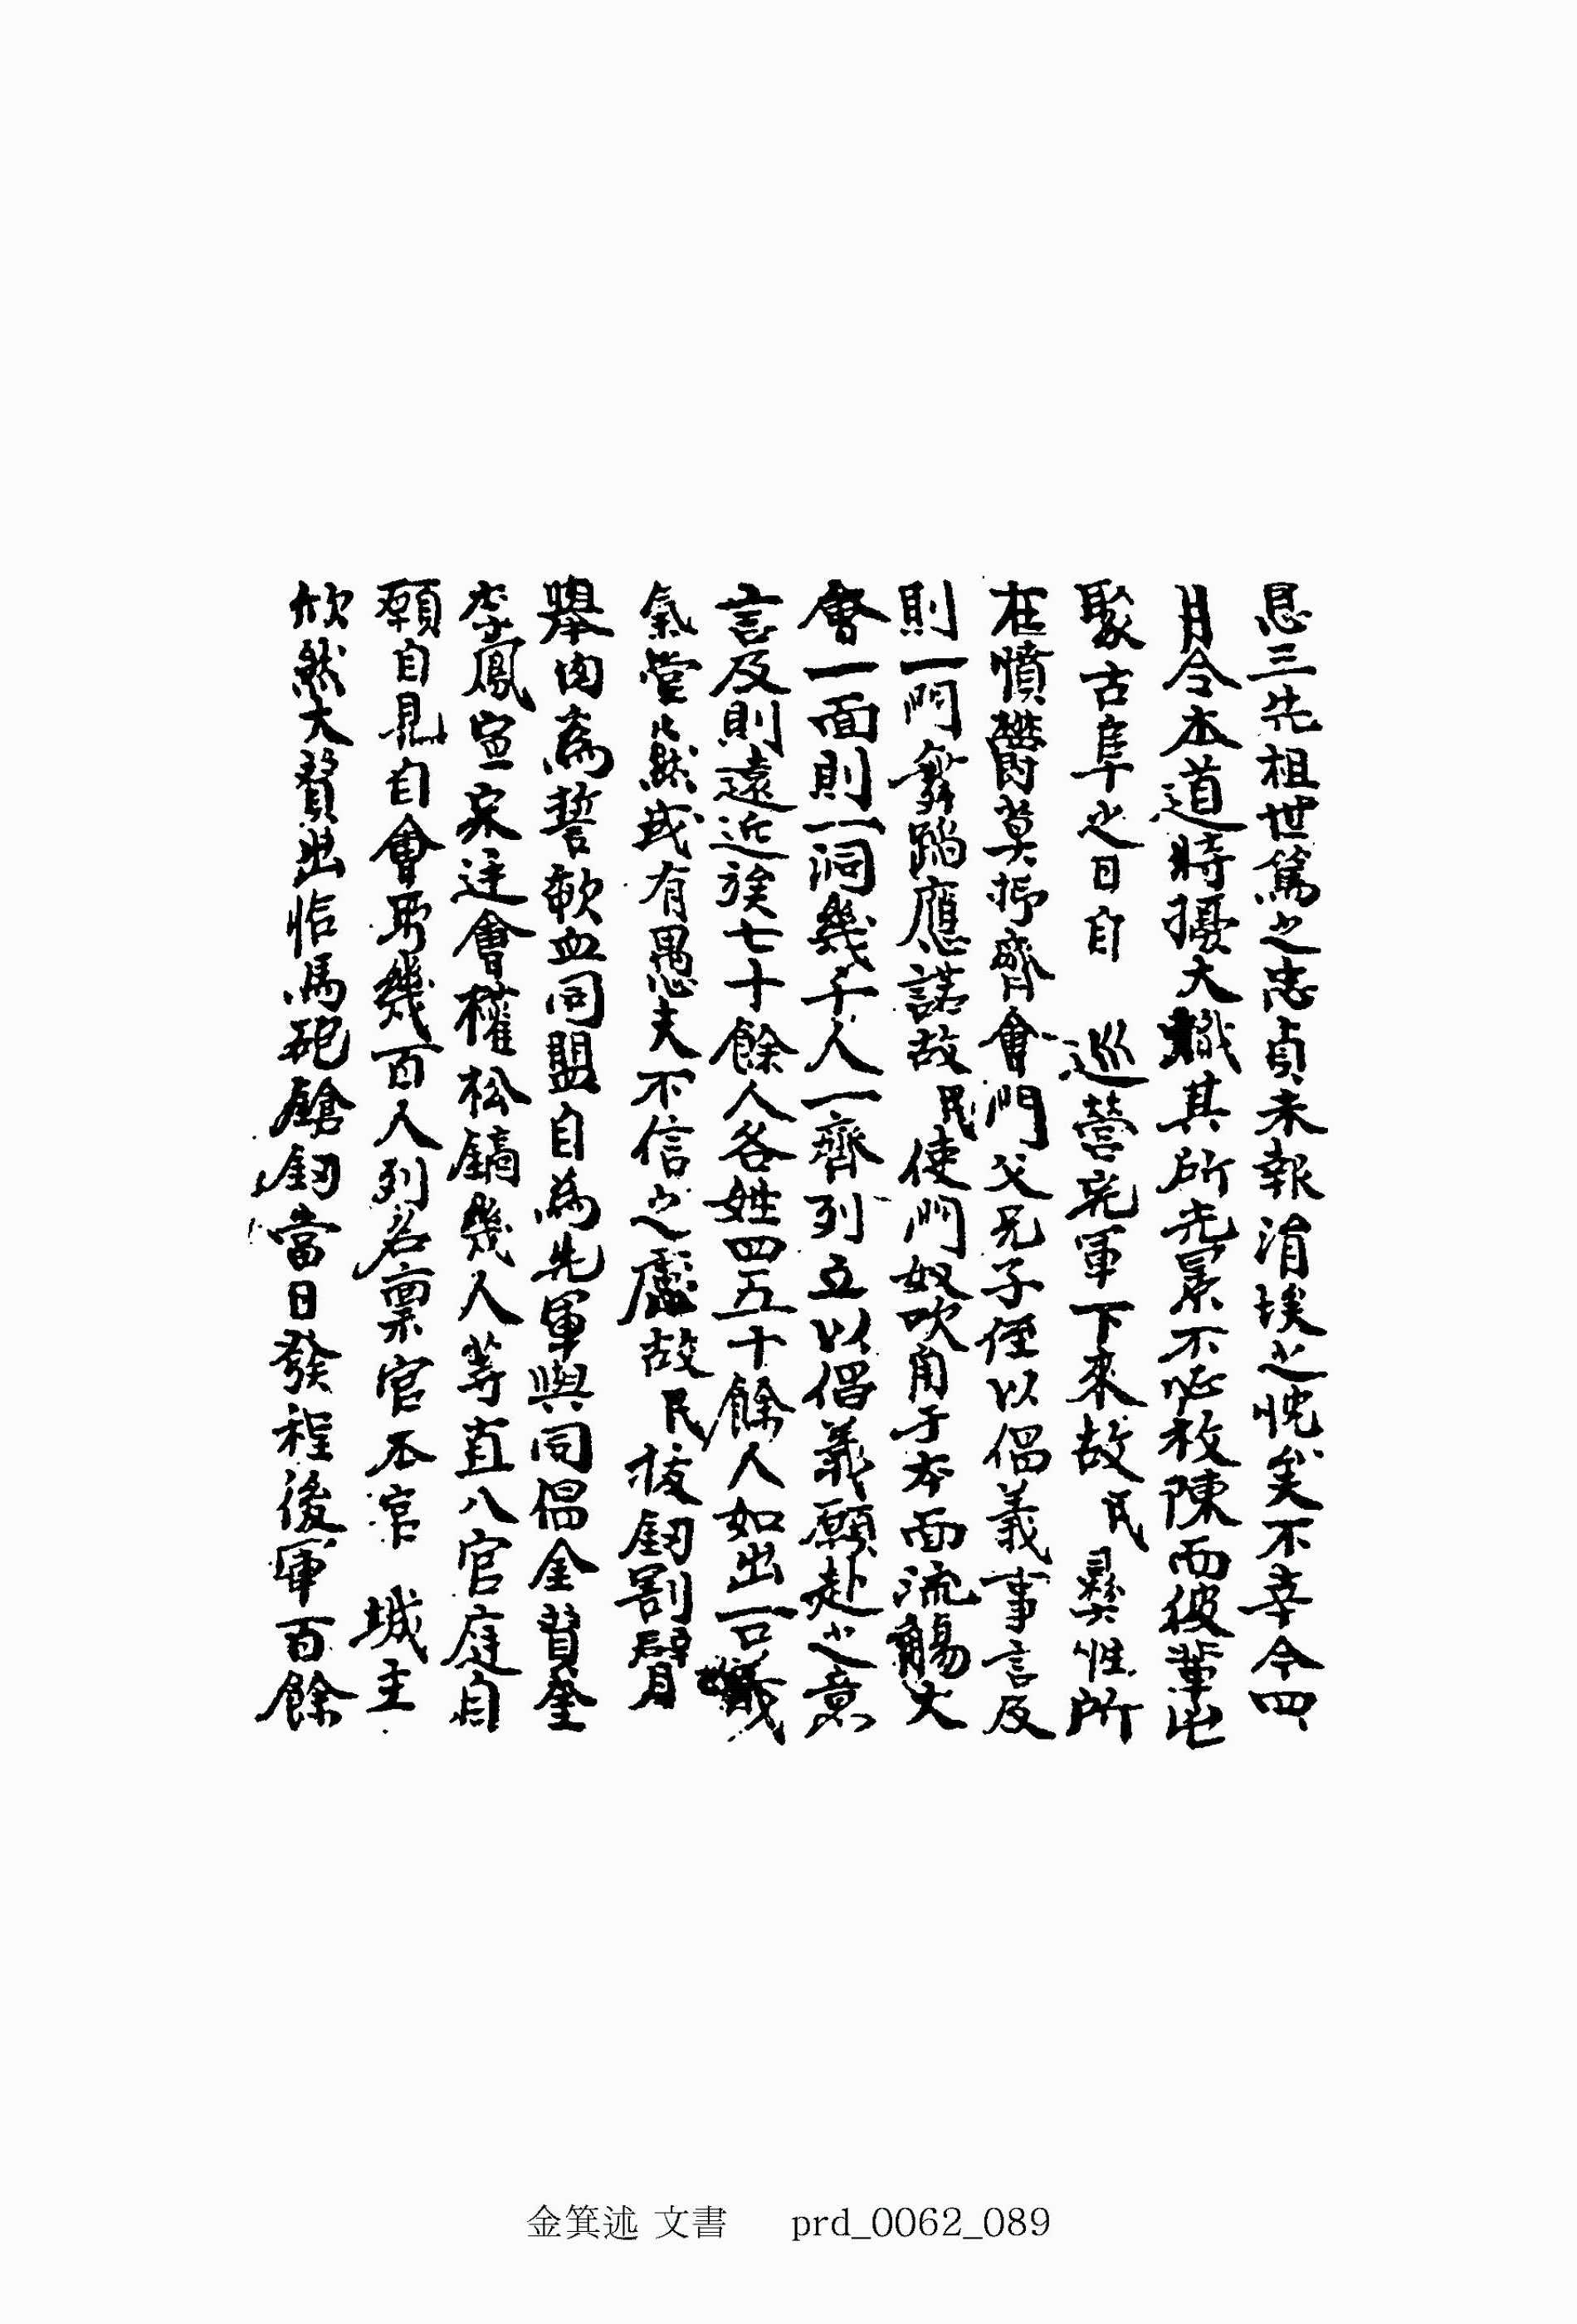 恳三先祖世篤之忠貞未報涓埃之忱矣不幸今四
月令本道時擾大熾其所光景不必枚陳而彼輩屯
聚古阜之日自 巡營完軍下來故民彛性所
在憤欝莫抑齊會門父兄子侄以倡義事言及
則一門舞蹈應諾故民使門奴吹角于本面流觴大
會一面則一洞幾千人一齊列立以倡義願赴之意
言及則遠近族七十餘人各姓四五十餘人如出一口義
氣堂々然或有愚夫不信之慮故民拔釰割臂
舉肉為誓歃血同盟自為先軍與同倡金贊奎
李鳳宣宋達會權松鎬幾人等直入官庭自
願自見自會哥幾百人列名禀官不官 城主
欣然大贊出給馬砲鎗釰當日發程後軍百餘
金箕述 文書 prd_0062_089